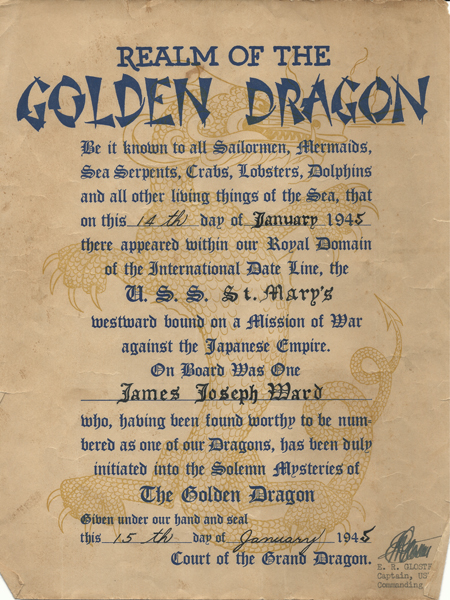 REALM OF THE
GOLDEN DRAGON
Be it known to all Sailormen, Mermaids,
Sea Serpents, Crabs, Lobsters, Dolphins
and all other living things of the Sea, that
on this 14 th day of January 1945
there appeared within our Royal Domain
of the International Date Line, the
U. S. S. St. Mary's
westward bound on a Mission of War
against the Japanese Empire.
On Board Was One
James Joseph Ward
who, having been found worthy to be num-
bered as one of our Dragons, has been duly
initiated into the Solemn Mysteries of
The Golden Dragon
Given under our hand and seal
this 15 th day of January 1945
Court of the Grand Dragon.
E. R.
Captain, US
Commanding